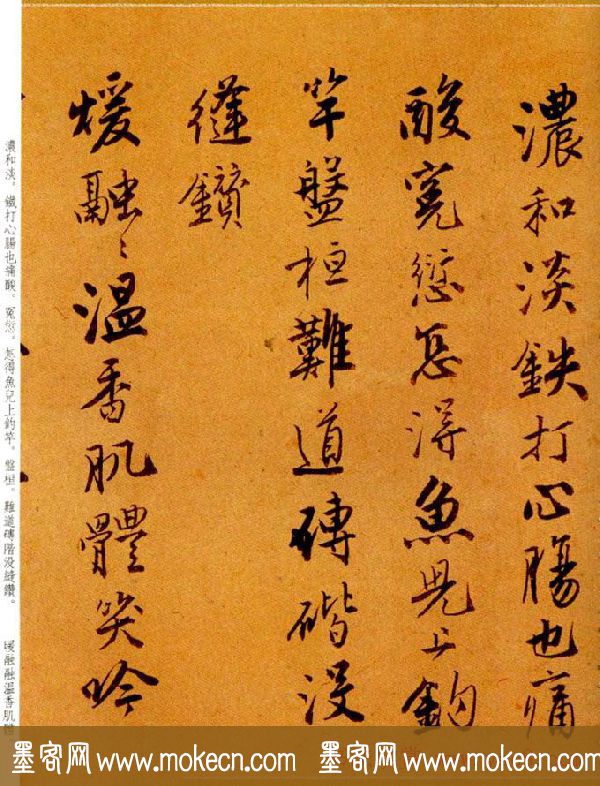 濃和淡鉄打心腸也痛
酸寃愆怎得魚児上鈎
竿盤桓難道磚階没
縫鑽
煖融々温香肌體笑吟
濃和淡。鐵打心腸也痛酸。寃愆。怎得魚兒上釣竿。盤桓。難道磚階没縫鑽。　暖融融温香肌體
墨客网 www.mokecn.com 墨客网 www.mokecn.com